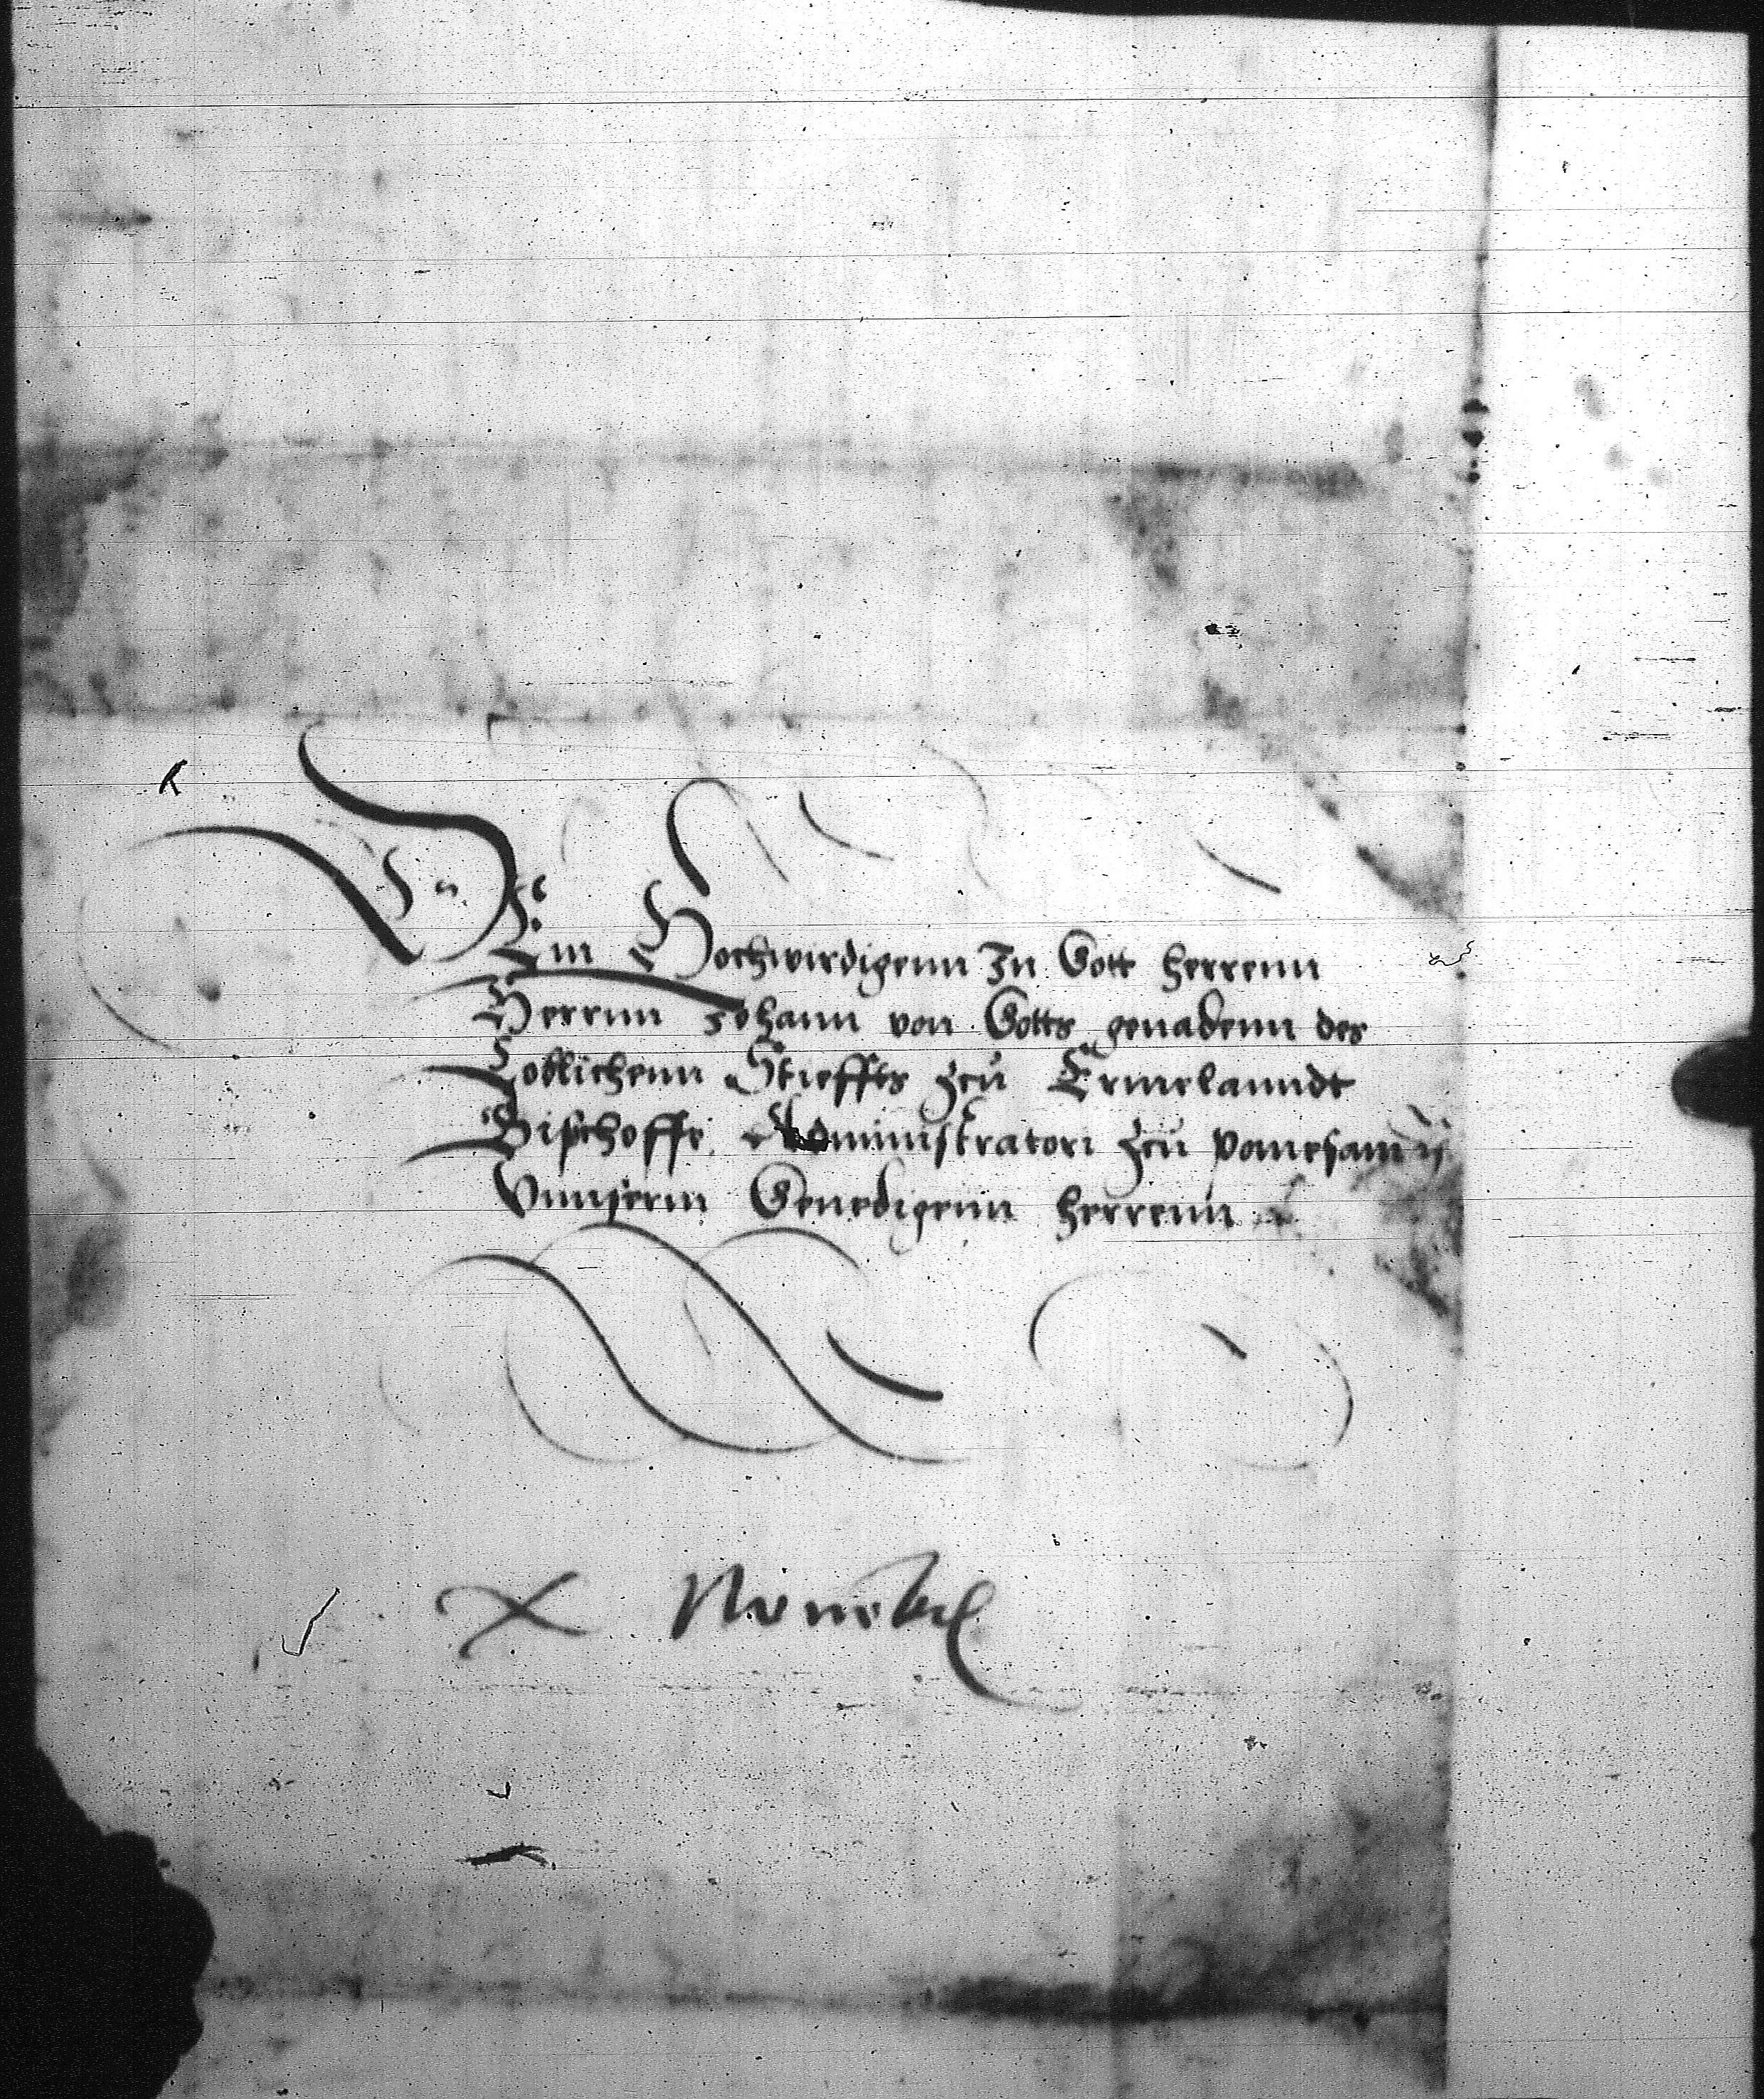 DEm Hochwirdigenn In Gott herrenn
Herrnn Johann von Gotts genadenn des
Loblichenn Stieffts zcu Ermelanndt
Bischoffe Administratori zcu pomesann
Vnnserm Genedigenn herrenn